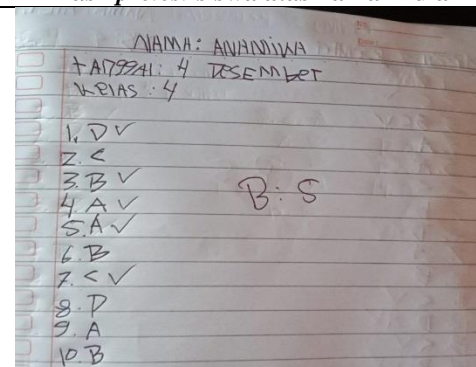 NAMA: ANANIWA
tANGGAL: 4 DESEMBER
KELAS : 4
1. D ✓
2. C
3. B ✓
4. A ✓
5. A ✓
6. B
7. C ✓
8. D
9. A
10. B
B: 5